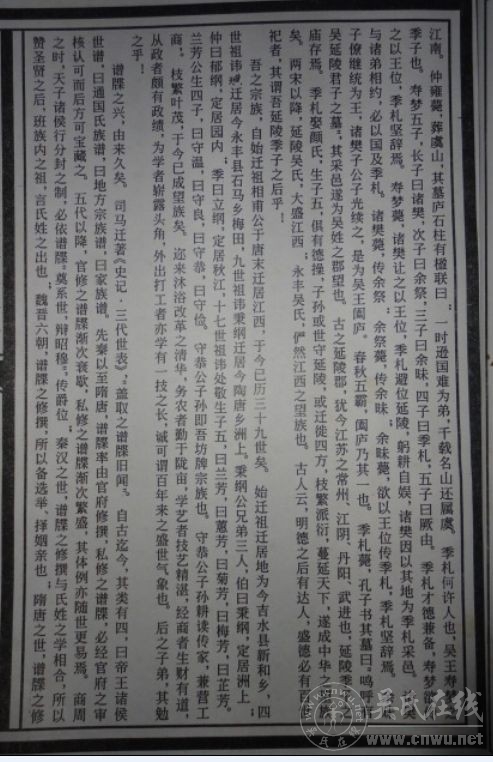 江南。仲雍薨，葬虞山，其墓庐石柱有楹联曰：一时逊国难为弟，千载名山还属虞。季札何许人也，吴王寿
季子也。寿梦五子，长子曰诸樊，次子曰余祭，三子曰余昧，四子曰季札，五子曰厥由。季札才德兼备，寿梦欲
之以王位，季札坚辞焉。寿梦薨，诸樊让之以王位，季札避位延陵，躬耕自娱，诸樊因以其地为季札采邑。
与诸弟相约，必以国及季札。诸樊薨，传余祭；余祭薨，传余昧；余昧薨，欲以王位传季札，季札坚辞
子僚继统为王，诸樊子公子光续之，是为吴王阖庐。春秋五霸，阖庐乃其一也。季札薨，孔子书其墓曰：呜呼
吴延陵君子之墓。其采邑遂为吴姓之郡望也。古之延陵郡，犹今江苏之常州、江阴、丹阳、武进也，延陵季
庙存焉。季札娶颜氏，生子五，俱有德操，子孙或世守延陵，或迁徙四方，枝繁派衍，蔓延天下，遂成中华之
矣。两宋以降，延陵吴氏，大盛江西；永丰吴氏，俨然江西之望族也。古人云，明德之后有达人，盛德必有百
祀者，其谓吾延陵季子之后乎！
吾之宗族，自始迁祖相南公于唐末迁居江西，于今已历三十九世矣。始迁祖迁居地为今吉水县新和乡，四
世祖讳迁居今永丰县石马乡梅田，九世祖讳秉纲迁居今陶唐乡洲上。秉纲公兄弟三人，伯曰秉纲，定居洲上；
仲曰郁纲，定居园内；季曰立纲，定居秋江，十七世祖讳处敬生子五，曰兰芳，曰蕙芳，曰菊芳，曰梅芳，曰芷芳。
兰芳公生四子，曰守温，曰守良，曰守恭，曰守俭。守恭公子孙即吾坊牌宗族也。守恭公子孙耕读传家，兼营工
商，枝繁叶茂，于今已成望族矣。迩来沐浴改革之清华，务农者勤于陇亩，学艺者技艺精湛，经商者生财有道，
从政者颇有政绩，为学者崭露头角，外出打工者亦学有一技之长，诚可谓百年来之盛世气象也。后之子弟，其勉
之乎！
谱牒之兴，由来久矣。司马迁著《史记·三代世表》，盖取之谱牒旧闻。自古迄今，其类有四，曰帝王诸侯
世谱，曰通国氏族谱，曰地方宗族谱，曰家族谱。先秦以至隋唐，谱牒率由官府修撰，私修之谱牒，必经官府之审
核认可而后方可宝藏之。五代以降，官修之谱牒渐次衰歇，私修之谱牒渐次繁盛，其体例亦随世更易焉。商周
之时，天子诸侯行分封之制，必依谱牒“奠系世，辩昭穆”，传爵位。秦汉之世，谱牒之修撰与氏姓之学相合，所以
赞圣贤之后，班族内之祖，言氏姓之出也；魏晋六朝，谱牒之修撰，所以备选举、择姻亲也；隋唐之世，谱牒之修
吴氏在线
www.cnwu.net